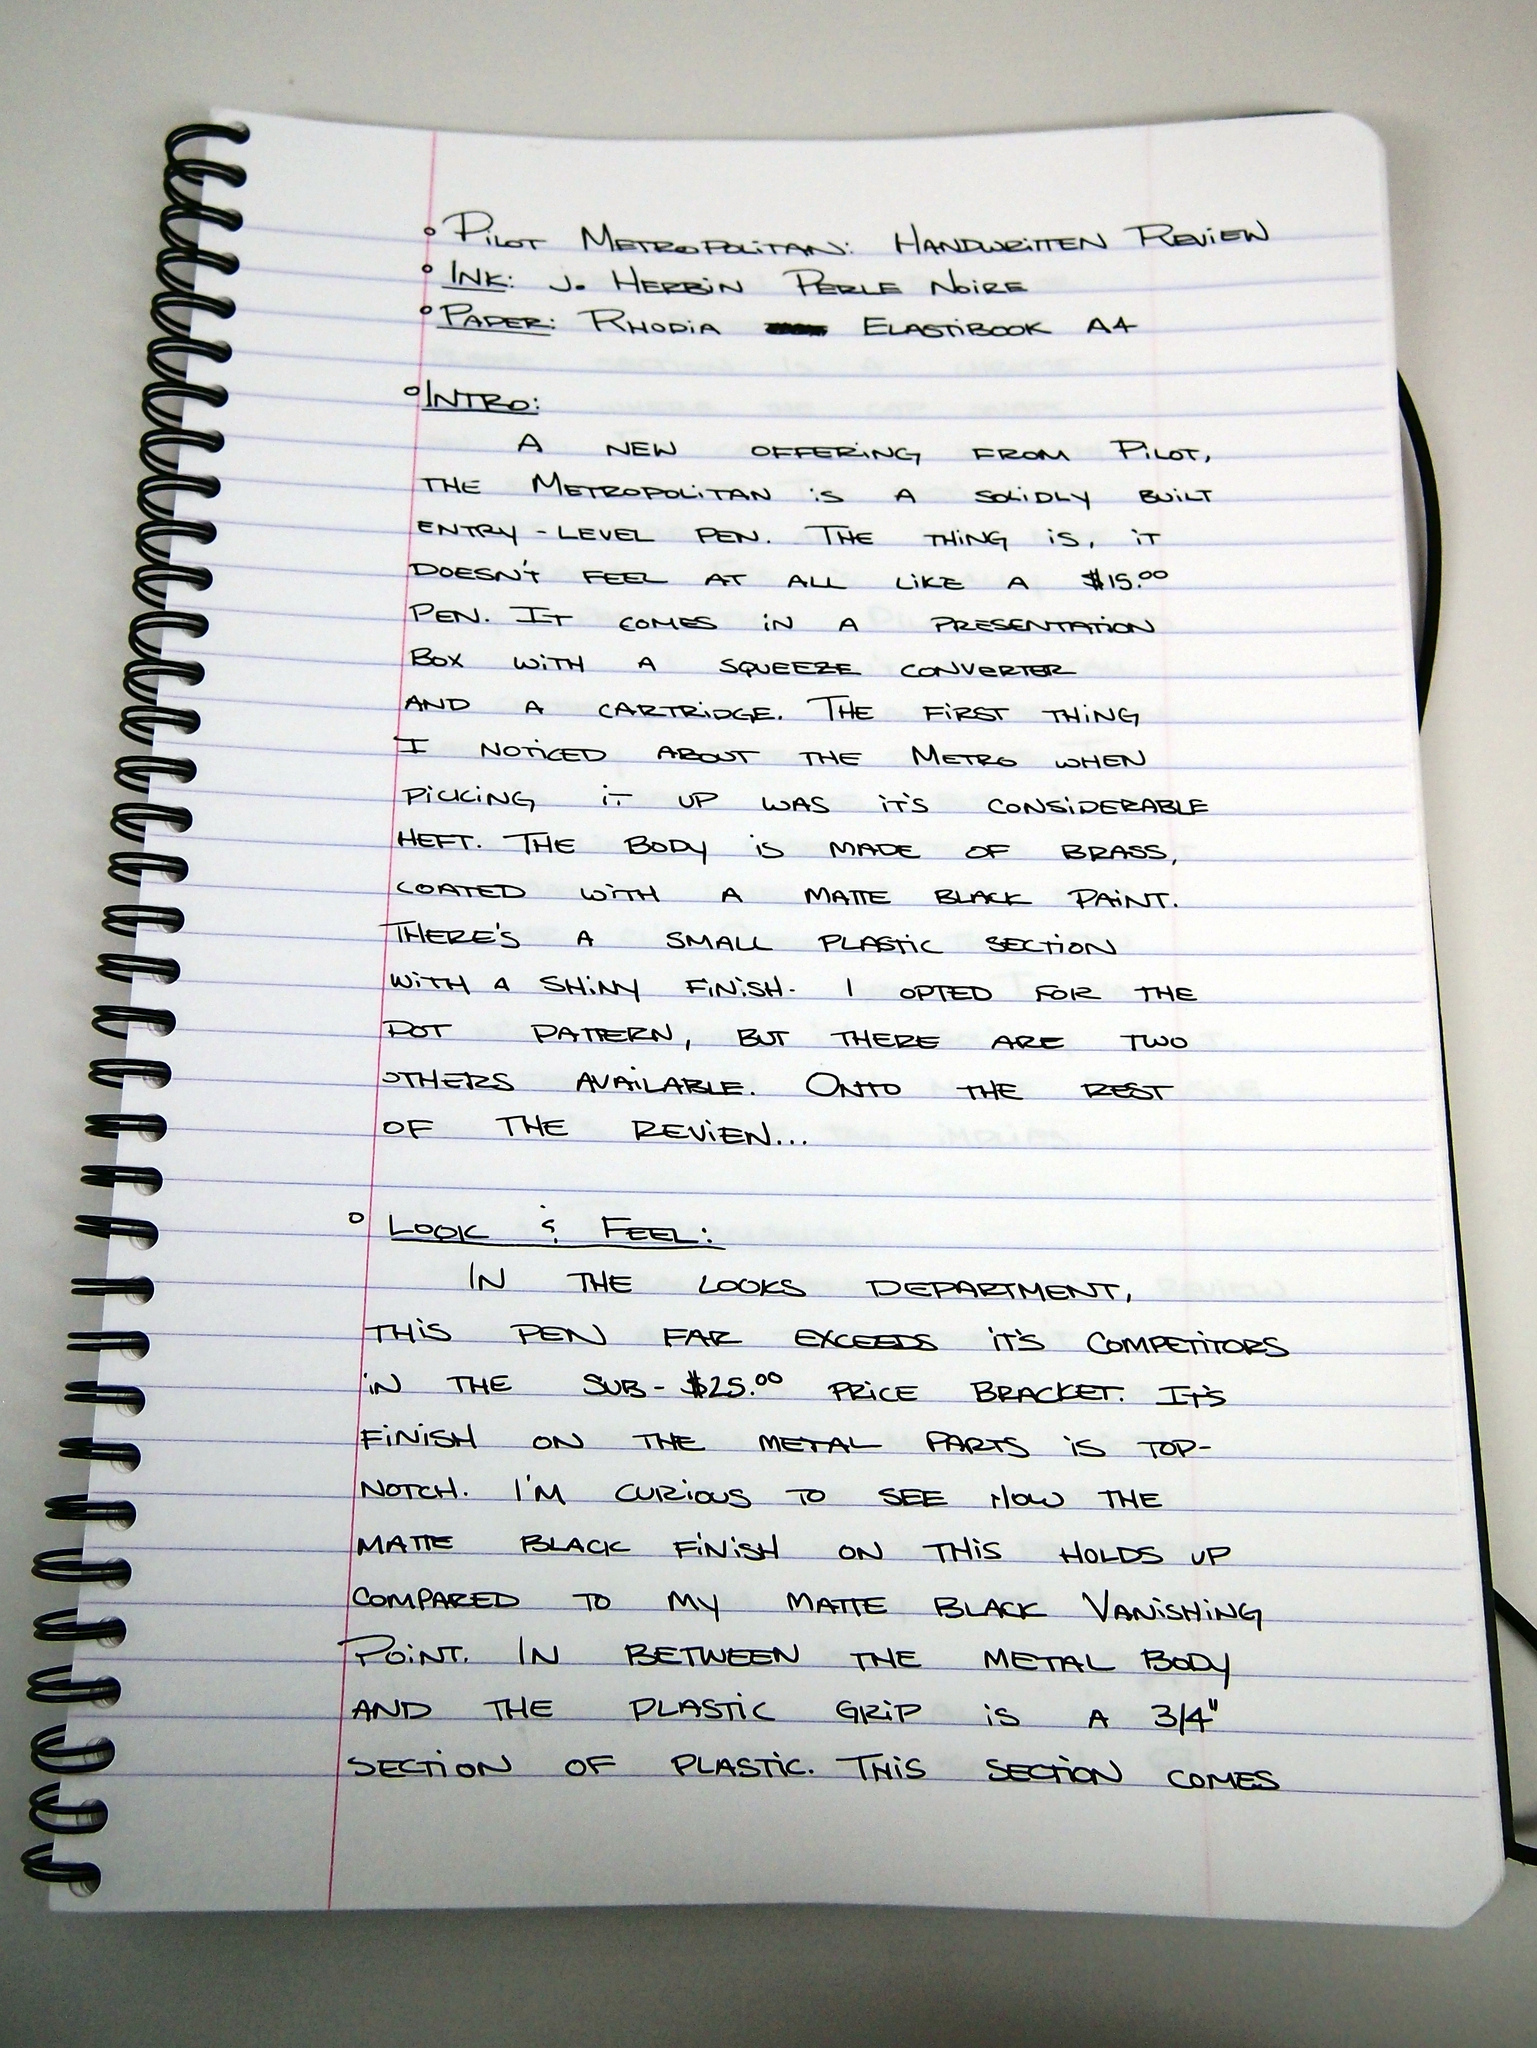 Pilot Metropolitan: Handwritten Review
Ink: J. Herbin Perle Noire
Paper: Rhodia Elastibook A4
Intro:
A new offering from Pilot,
the Metropolitan is a solidly built
entry-level pen. The thing is, it
doesn't feel at all like a $15.00
pen. It comes in a presentation
box with a squeeze converter
and a cartridge. The first thing
I noticed about the Metro when
picking it up was it's considerable
heft. The body is made of brass,
coated with a matte black paint.
There's a small plastic section
with a shiny finish. I opted for the
dot pattern, but there are two
others available. Onto the rest
of the review...
Look & Feel:
In the looks department,
this pen far exceeds it's competitors
in the sub-$25.00 price bracket. It's
finish on the metal parts is top-
notch. I'm curious to see how the
matte black finish on this holds up
compared to my matte black Vanishing
Point. In between the metal body
and the plastic grip is a 3/4"
section of plastic. This section comes